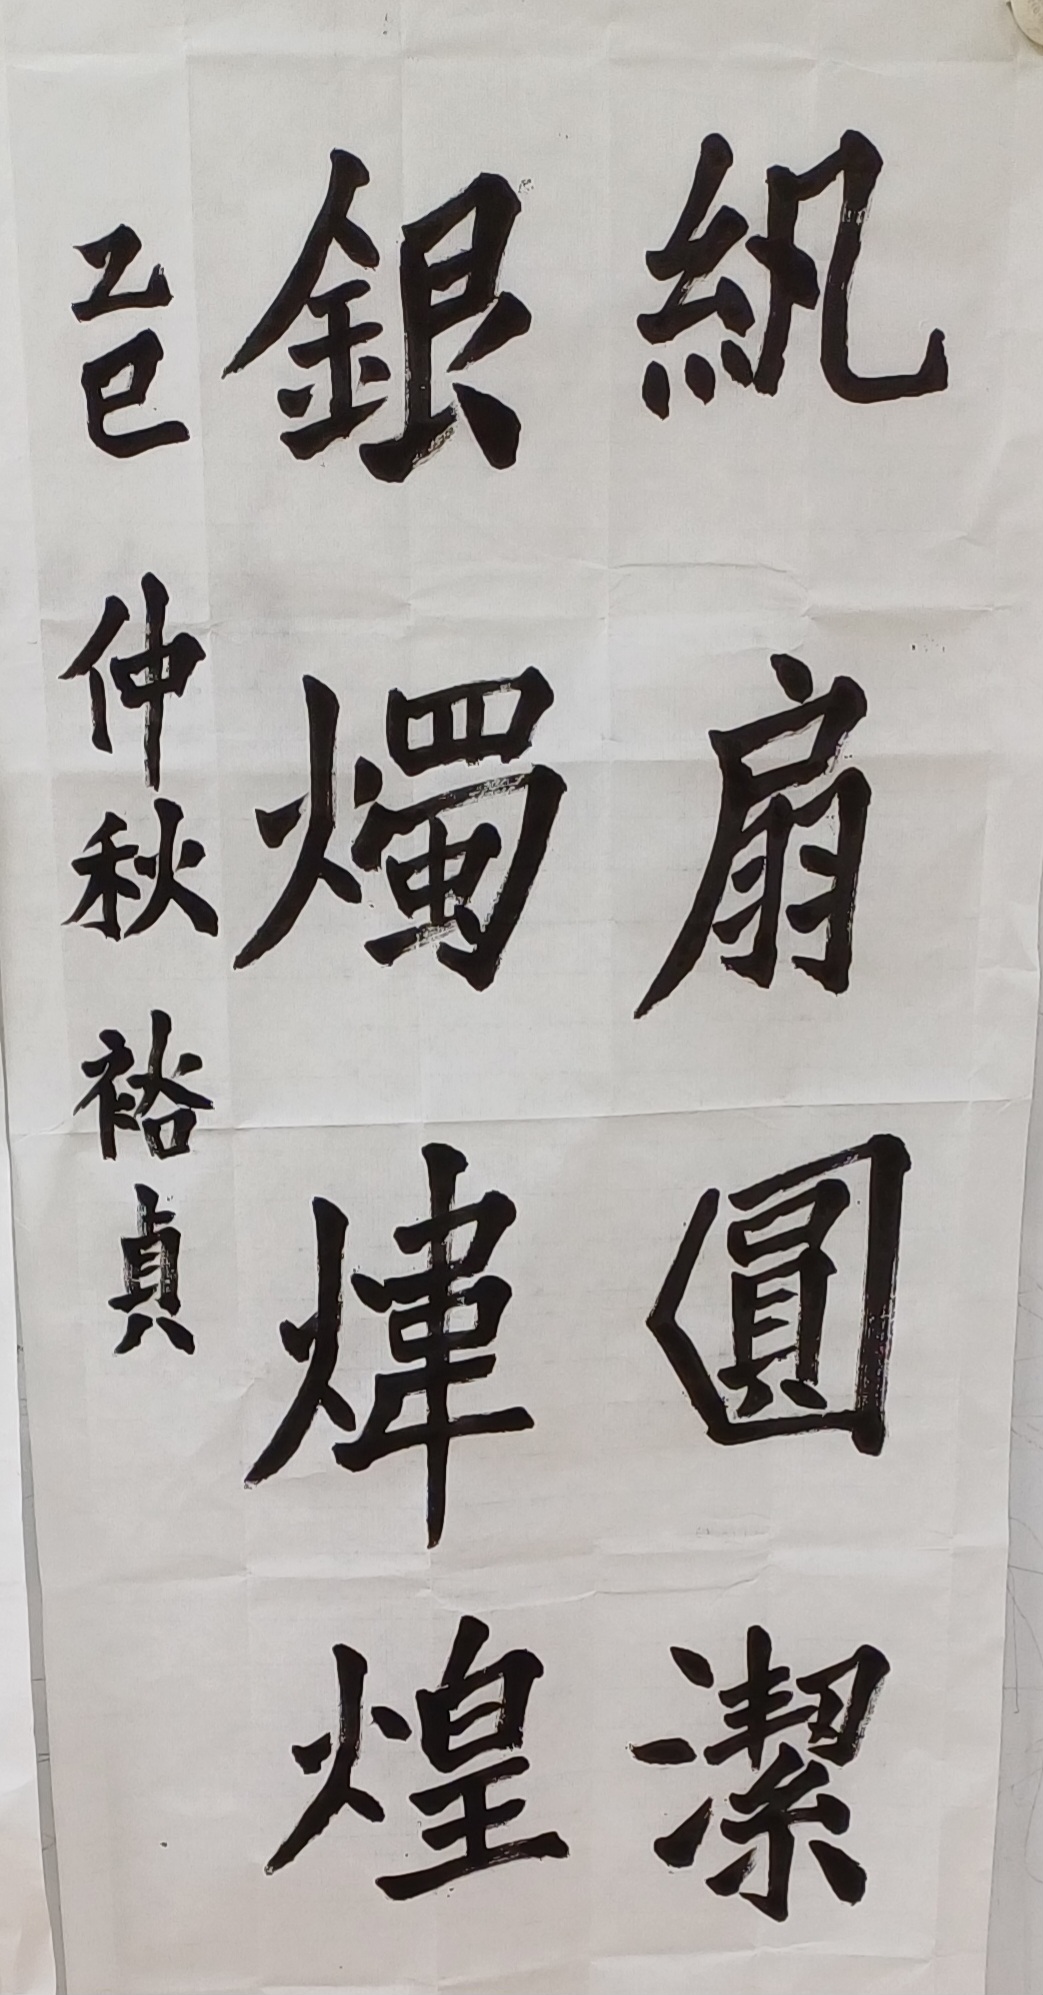 紈扇圓潔
銀燭煒煌
乙巳 仲秋 裕貞